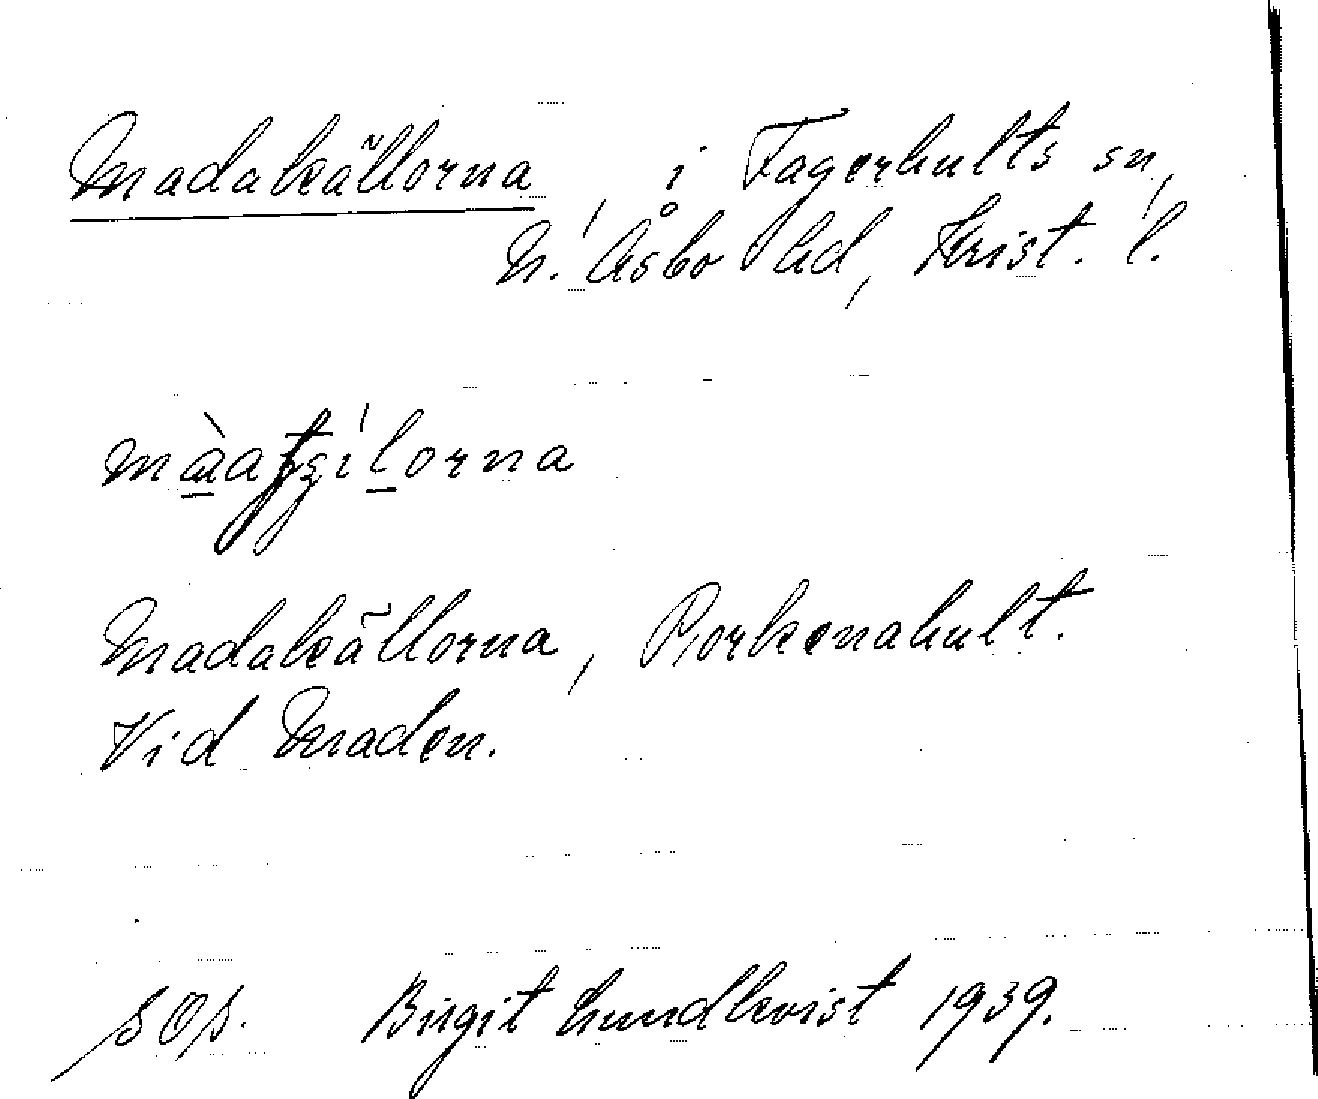 Madakällorna i Fagerhults sn,
N. Åsbo hd, Krist. l.
Madakällorna, Porkenahult.
Vid Maden.
sOs. Birgit Lundkvist 1939.